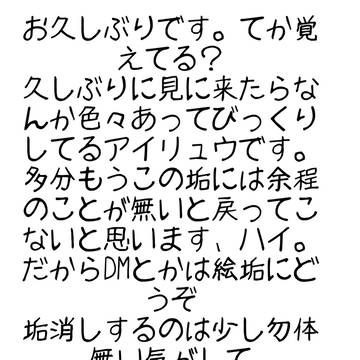 お久しぶりです。てか覚
えてる？
久しぶりに見に来たらな
んか色々あってびっくり
してるアイリュウです。
多分もうこの垢には余程
のことが無いと戻ってこ
ないと思います、ハイ。
だからDMとかは絵垢にど
うぞ
垢消しするのは少し勿体
無い気がして